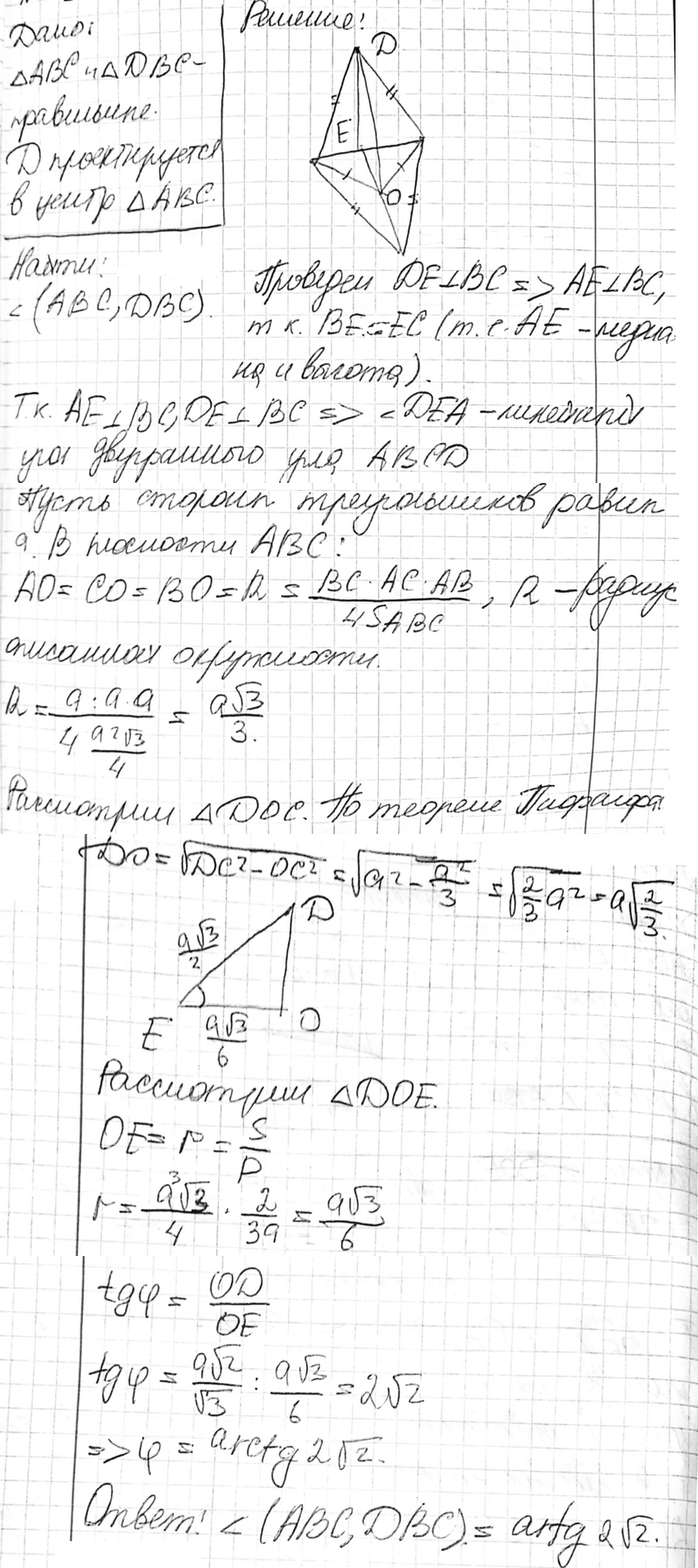 Дано:
△ABC и △DBC –
правильные.
D проектируется
в центр △ABC.
Найти:
∠(ABC, DBC).
Решение!
D
E
O
Проведем DE⊥BC => AE⊥BC,
т к. BE=EC (т. е. AE – медиа
на и высота).
Т к. AE⊥BC, DE⊥BC => ∠DEA – линейный
угол двугранного угла ABCD
Пусть сторон треугольников равны
a. В плоскости ABC:
AO = CO = BO = R = BC · AC · AB / 4S ABC , R – радиус
описанной окружности.
R = a · a · a / 4 a²√3/4 = a√3/3.
Рассмотрим △DOC. По теореме Пифагора
DO = √DC² – OC² = √a² – a²/3 = √2/3 a² = a√2/3.
D
a√3/2
E a√3/6 O
Рассмотрим △DOE.
OE = r = S/p
r = a³√3/4 · 2/3a = a√3/6
tgφ = OD/OE
tgφ = a√2/√3 : a√3/6 = 2√2
=> φ = arctg 2√2.
Ответ! ∠(ABC, DBC) = arctg 2√2.